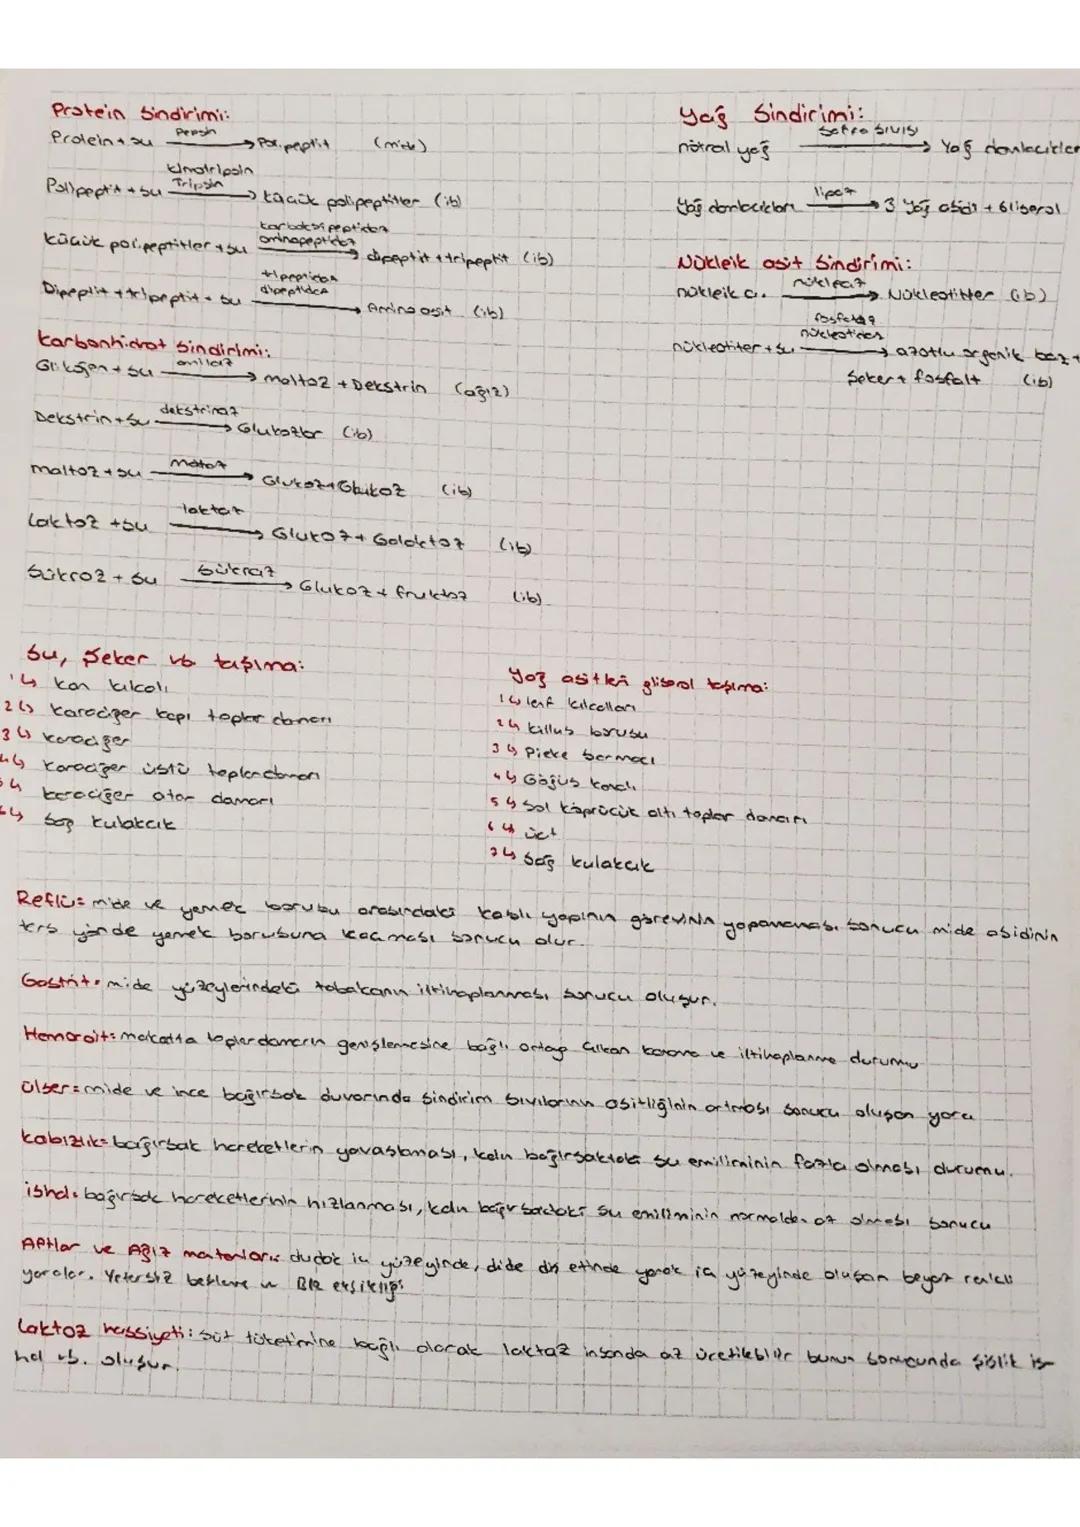 Protein Sindirimi:
Protein + su →(Pepsin) Polipeptit (mide)
Polipeptit + su →(kimotripsin Tripsin) küçük polipeptitler (ib)
küçük polipeptitler + su →(karboksipeptidaz aminopeptidaz) dipeptit + tripeptit (ib)
Dipeptit + tripeptit + su →(tripeptidaz dipeptidaz) Amino asit (ib)
Karbonhidrat Sindirimi:
Glikojen + su →(amilaz) maltoz + Dekstrin (ağız)
Dekstrin + su →(dekstrinaz) Glukozlar (ib)
maltoz + su →(maltaz) Glukoz + Glukoz (ib)
Laktoz + su →(laktaz) Glukoz + Galaktoz (ib)
Sükroz + su →(sükraz) Glukoz + fruktoz (ib)
Yağ Sindirimi:
nötral yağ →(Safra sıvısı) Yağ damlacıkları
Yağ damlacıkları →(lipaz) 3 Yağ asidi + Gliserol
Nükleik asit Sindirimi:
nükleik a. →(nükleaz) Nükleotitler (ib)
nükleotitler + su →(fosfataz nükleotidaz) azotlu organik baz +
Şeker + fosfalt (ib)
Su, Şeker vb taşıma:
1↳ kan kılcalı
2↳ karaciğer kapı toplar damarı
3↳ karaciğer
4↳ karaciğer üstü toplardamarı
5↳ karaciğer atar damarı
6↳ Sağ kulakcık
Yağ asitleri gliserol taşıma:
1↳ lenf kılcalları
2↳ killus borusu
3↳ Peke sarnacı
4↳ Göğüs kanalı
5↳ Sol köprücük altı toplar damarı
6↳ üct
7↳ Sağ kulakcık
Reflü= mide ve yemek borusu arasındaki kaslı yapının görevinin yapamaması sonucu mide asidinin
ters yönde yemek borusuna kaçması sonucu olur.
Gastrit= mide yüzeylerindeki tabakanın iltihaplanması sonucu oluşur.
Hemoroit: makatta toplardamarın genişlemesine bağlı ortaya çıkan kanama ve iltihaplanma durumu
ülser= mide ve ince bağırsak duvarında Sindirim sıvılarının asitliğinin artması sonucu oluşan yara
kabızlık= bağırsak hareketlerin yavaşlaması, kalın bağırsaktaki su emiliminin fazla olması durumu.
ishal= bağırsak hareketlerinin hızlanması, kalın bağırsaktaki su emiliminin normalden az olması sonucu
Aftlar ve Ağız mantarları: dudak iç yüzeyinde, dilde diş etinde yanak iç yüzeyinde oluşan beyaz renkli
yaralar. Yetersiz beslenme ve B12 eksikliği
Laktoz hassiyeti: süt tüketimine bağlı olarak laktaz insanda az üretilebilir bunun sonucunda şişlik is-
hal vb. oluşur.